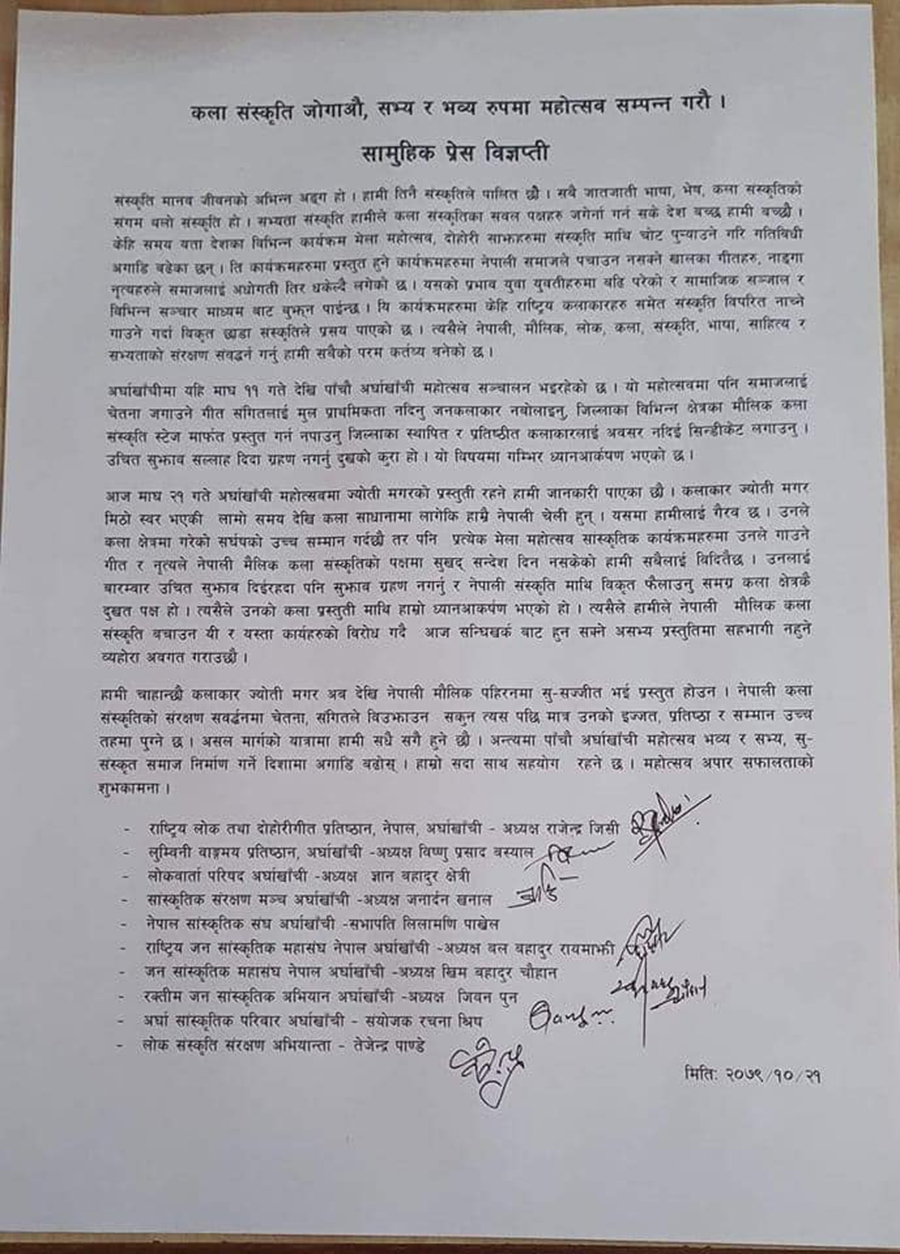 कला संस्कृति जोगाऔ, सभ्य र भव्य रुपमा महोत्सव सम्पन्न गरौ ।
सामुहिक प्रेस विज्ञप्ती
संस्कृति मानव जीवनको अभिन्न अङ्ग हो । हामी तिनै संस्कृतिले पालित छौ । सबै जातजाती भाषा, भेष, कला संस्कृतिको
संगम थलो संस्कृति हो । सभ्यता संस्कृति हामीले कला संस्कृतिका सवल पक्षहरु जगेर्ना गर्न सके देश बच्छ हामी बच्छौ ।
केहि समय यता देशका विभिन्न कार्यक्रम मेला महोत्सव, दोहोरी साझहरुमा संस्कृति माथि चोट पुऱ्याउने गरि गतिविधी
अगाडि बढेका छन् । ति कार्यक्रमहरुमा प्रस्तुत हुने कार्यक्रमहरुमा नेपाली समाजले पचाउन नसक्ने खालका गीतहरु, नाङ्गा
नृत्यहरुले समाजलाई अधोगती तिर धकेल्दै लगेको छ । यसको प्रभाव युवा युवतीहरुमा बढि परेको र सामाजिक सञ्जाल र
विभिन्न सञ्चार माध्यम बाट बुझ्न पाईन्छ । यि कार्यक्रमहरुमा केहि राष्ट्रिय कलाकारहरु समेत संस्कृति विपरित नाच्ने
गाउने गर्दा विकृत छाडा संस्कृतिले प्रसय पाएको छ । त्यसैले नेपाली, मौलिक, लोक, कला, संस्कृति, भाषा, साहित्य र
सभ्यताको संरक्षण संवर्द्धन गर्नु हामी सबैको परम कर्तव्य बनेको छ ।
अर्घाखाँचीमा यहि माघ ११ गते देखि पाँचौ अर्घाखाँची महोत्सव सञ्चालन भइरहेको छ । यो महोत्सवमा पनि समाजलाई
चेतना जगाउने गीत संगितलाई मुल प्राथमिकता नदिनु जनकलाकार नबोलाइनु, जिल्लाका विभिन्न क्षेत्रका मौलिक कला
संस्कृति स्टेज मार्फत प्रस्तुत गर्न नपाउनु जिल्लाका स्थापित र प्रतिष्ठीत कलाकारलाई अवसर नदिई सिन्डीकेट लगाउनु ।
उचित सुझाव सल्लाह दिदा ग्रहण नगर्नु दुखको कुरा हो । यो विषयमा गम्भिर ध्यानआर्कषण भएको छ ।
आज माघ २१ गते अर्घाखाँची महोत्सवमा ज्योती मगरको प्रस्तुती रहने हामी जानकारी पाएका छौ । कलाकार ज्योती मगर
मिठो स्वर भएकी लामो समय देखि कला साधानामा लागेकि हाम्रै नेपाली चेली हुन् । यसमा हामीलाई गैरव छ । उनले
कला क्षेत्रमा गरेको सर्घषको उच्च सम्मान गर्दछौ तर पनि प्रत्येक मेला महोत्सव सांस्कृतिक कार्यक्रमहरुमा उनले गाउने
गीत र नृत्यले नेपाली मैलिक कला संस्कृतिको पक्षमा सुखद् सन्देश दिन नसकेको हामी सबैलाई विदितैछ । उनलाई
बारम्बार उचित सुझाव दिईरहदा पनि सुझाव ग्रहण नगर्नु र नेपाली संस्कृति माथि विकृत फैलाउनु समग्र कला क्षेत्रकै
दुखत पक्ष हो । त्यसैले उनको कला प्रस्तुती माथि हाम्रो ध्यानआकर्षण भएको हो । त्यसैले हामीले नेपाली मौलिक कला
संस्कृति बचाउन यी र यस्ता कार्यहरुको विरोध गदै आज सन्धिखर्क बाट हुन सक्ने असभ्य प्रस्तुतिमा सहभागी नहुने
व्यहोरा अवगत गराउछौ ।
हामी चाहान्छौ कलाकार ज्योती मगर अब देखि नेपाली मौलिक पहिरनमा सु-सज्जीत भई प्रस्तुत होउन । नेपाली कला
संस्कृतिको संरक्षण सवर्द्धनमा चेतना, संगितले विउझाउन सकुन त्यस पछि मात्र उनको इज्जत, प्रतिष्ठा र सम्मान उच्च
तहमा पुग्ने छ । असल मार्गको यात्रामा हामी सधै सगै हुने छौ । अन्त्यमा पाँचौ अर्घाखाँची महोत्सव भव्य र सभ्य, सु-
संस्कृत समाज निर्माण गर्ने दिशामा अगाडि बढोस् । हाम्रो सदा साथ सहयोग रहने छ । महोत्सव अपार सफालताको
शुभकामना ।
- राष्ट्रिय लोक तथा दोहोरीगीत प्रतिष्ठान, नेपाल, अर्घाखाँची - अध्यक्ष राजेन्द्र जिसी
- लुम्विनी वाङ्गमय प्रतिष्ठान, अर्घाखाँची -अध्यक्ष विष्णु प्रसाद बस्याल
- लोकवार्ता परिषद अर्घाखाँची -अध्यक्ष ज्ञान बहादुर क्षेत्री
- सांस्कृतिक संरक्षण मञ्च अर्घाखाँची -अध्यक्ष जनार्दन खनाल
- नेपाल सांस्कृतिक संघ अर्घाखाँची -सभापति लिलामणि पाखेल
- राष्ट्रिय जन सांस्कृतिक महासंघ नेपाल अर्घाखाँची -अध्यक्ष बल बहादुर रायमाझी
- जन सांस्कृतिक महासंघ नेपाल अर्घाखाँची -अध्यक्ष खिम बहादुर चौहान
- रक्तीम जन सांस्कृतिक अभियान अर्घाखाँची -अध्यक्ष जिवन पुन
- अर्घा सांस्कृतिक परिवार अर्घाखाँची - संयोजक रचना श्रिष
- लोक संस्कृति संरक्षण अभियान्ता - तेजेन्द्र पाण्डे
मिति: २०७९/१०/२१